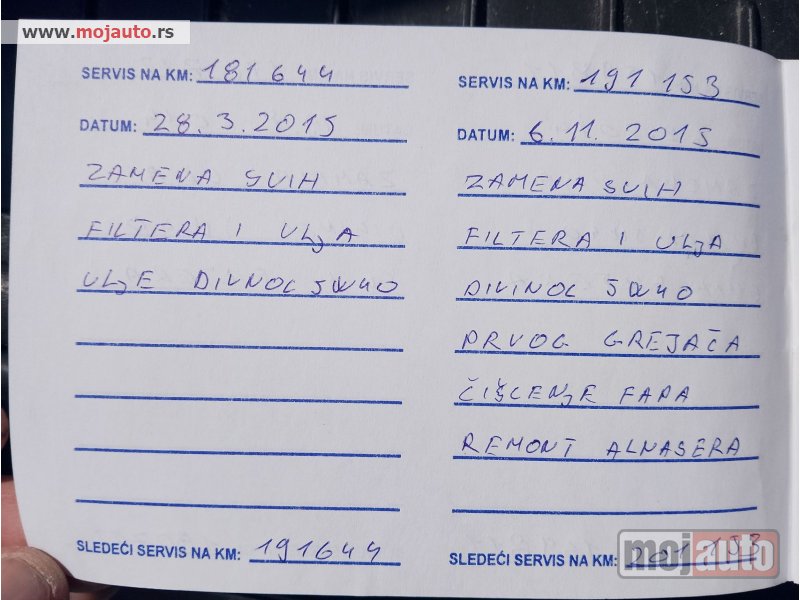 www.mojauto.rs
SERVIS NA KM: 181 644
DATUM: 28.3.2015
ZAMENA SVIH
FILTERA I ULJA
ULJE DIVNOL 5W40
SLEDEĆI SERVIS NA KM: 191644
SERVIS NA KM: 191 153
DATUM: 6.11. 2015
ZAMENA SVIH
FILTERA I ULJA
DIVINOL 5W40
PRVOG GREJAČA
ČIŠĆENJE FAPA
REMONT ALNASERA
SLEDEĆI SERVIS NA KM: 201 153
mojauto